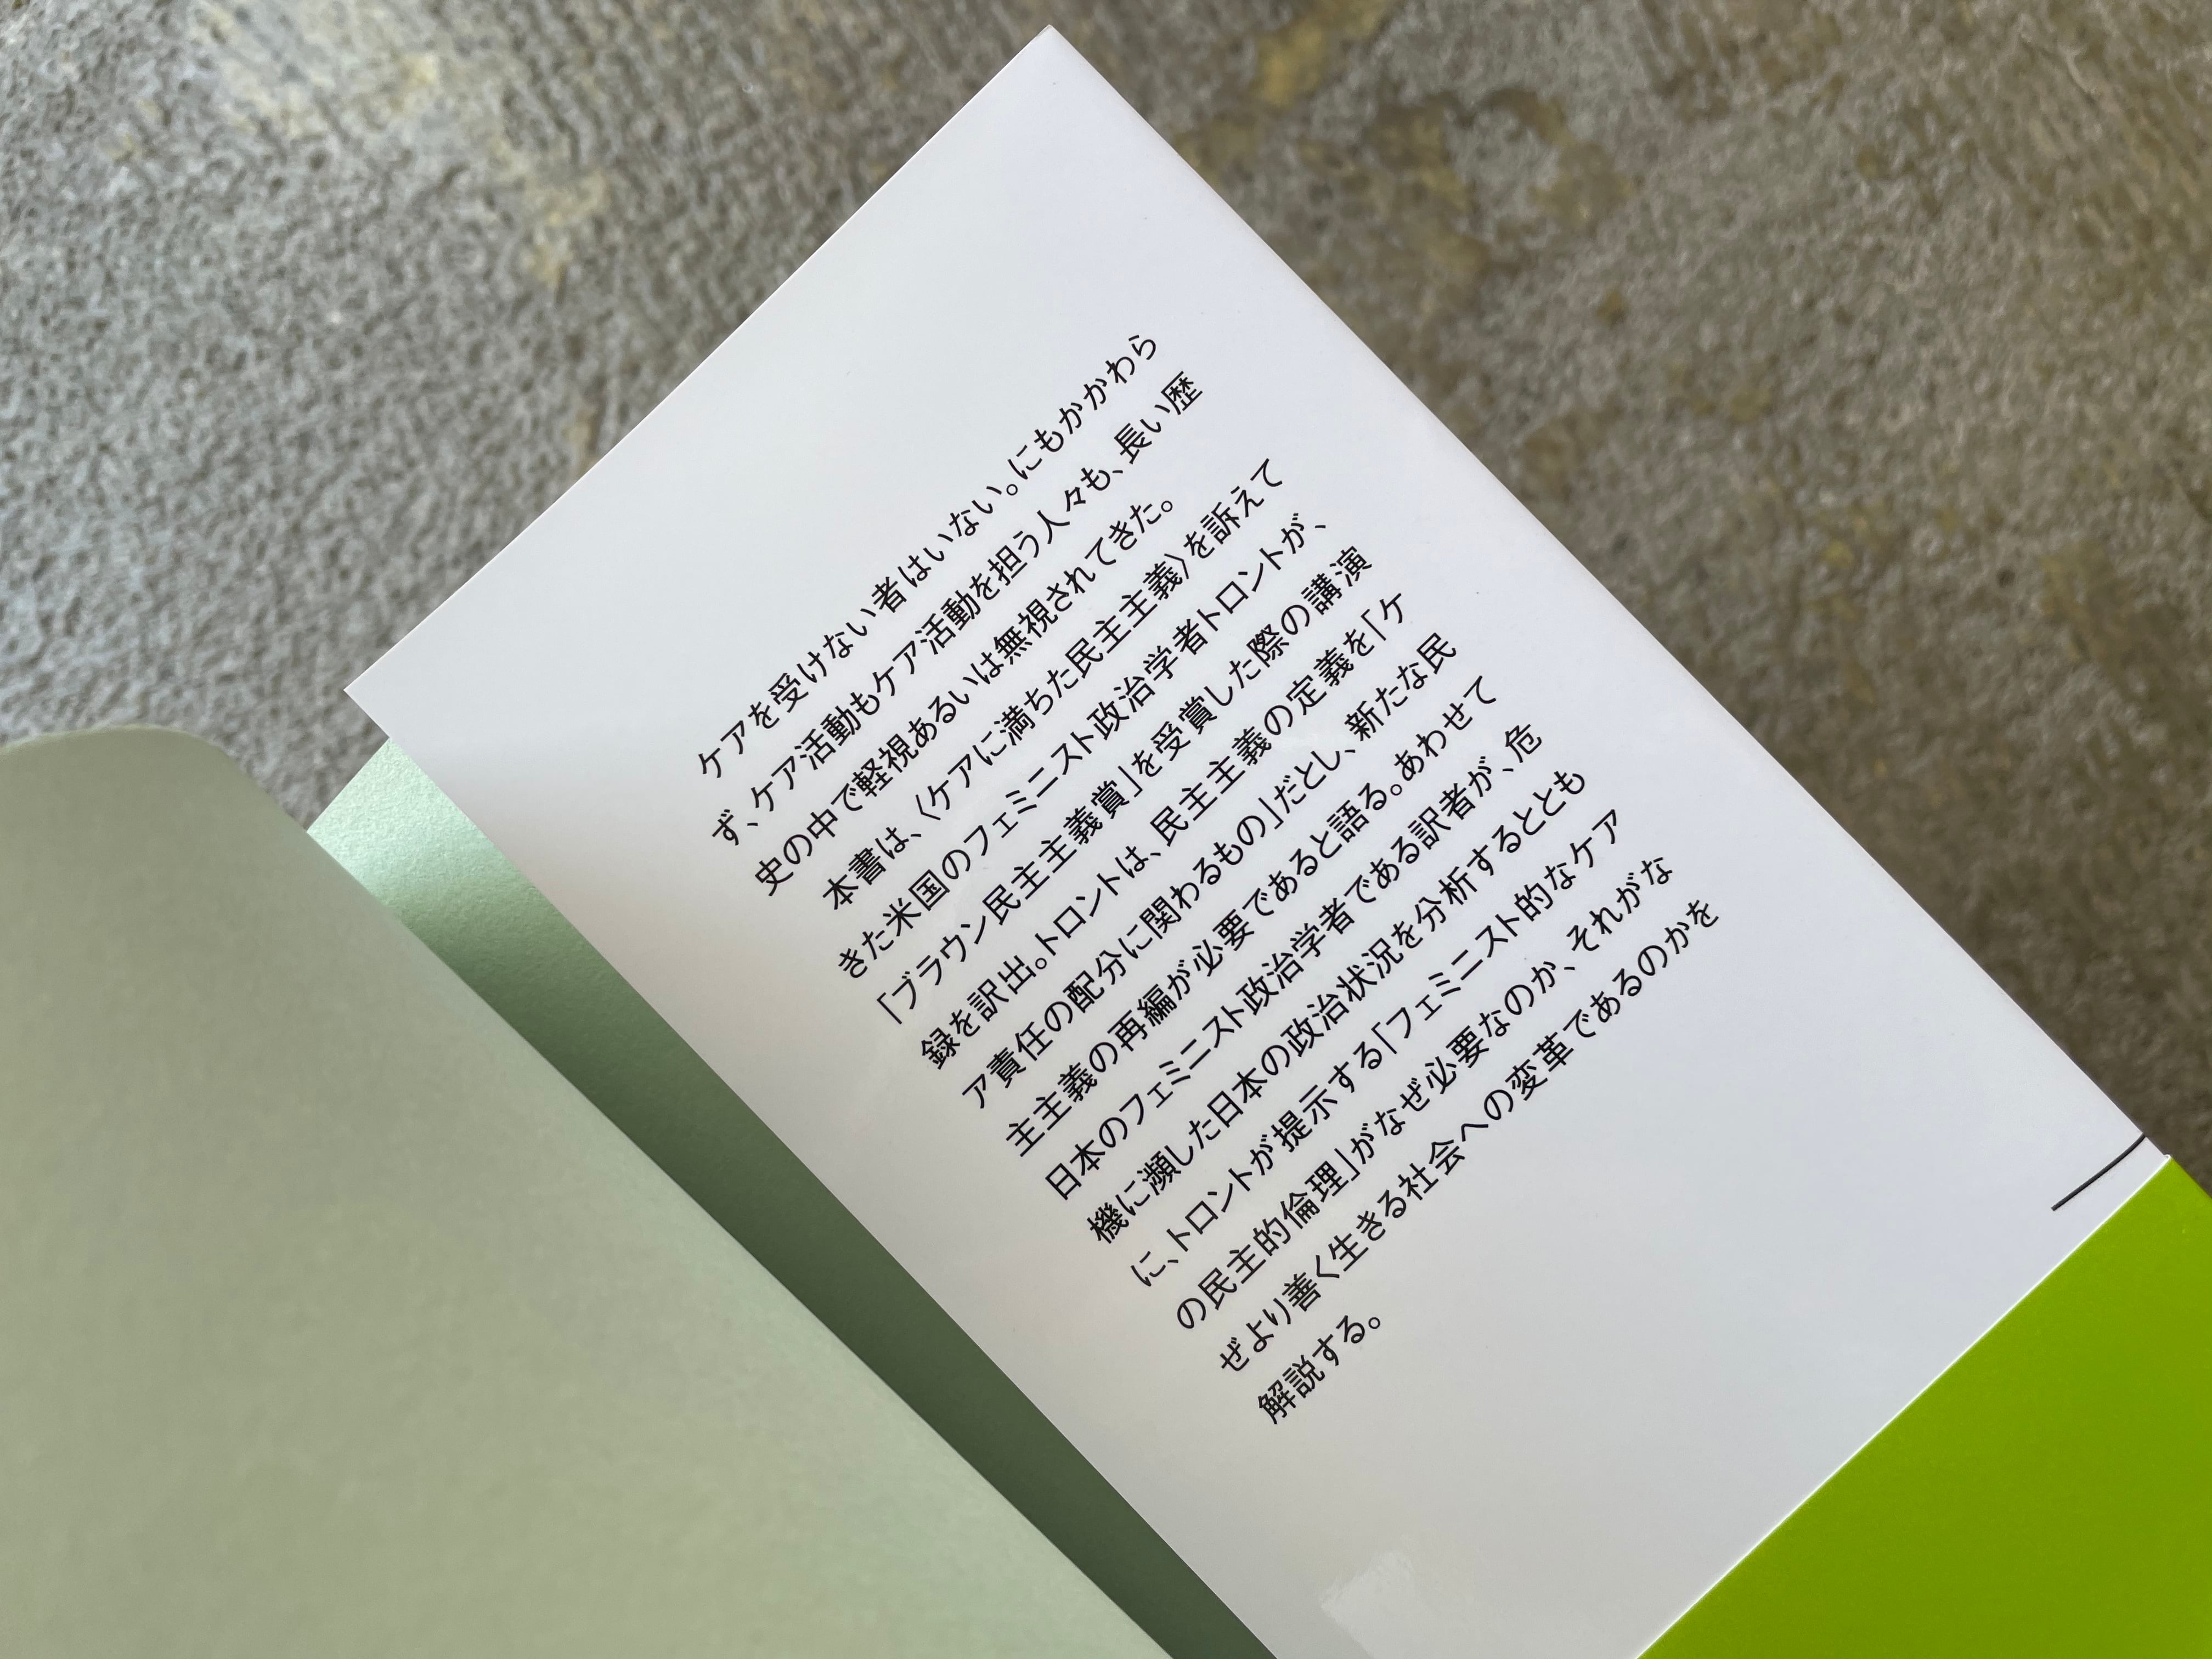 ケアを受けない者はいない。にもかかわら
ず、ケア活動もケア活動を担う人々も、長い歴
史の中で軽視あるいは無視されてきた。
本書は、〈ケアに満ちた民主主義〉を訴えて
きた米国のフェミニスト政治学者トロントが、
「ブラウン民主主義賞」を受賞した際の講演
録を訳出。トロントは、民主主義の定義を「ケ
ア責任の配分に関わるもの」だとし、新たな民
主主義の再編が必要であると語る。あわせて
日本のフェミニスト政治学者である訳者が、危
機に瀕した日本の政治状況を分析するととも
に、トロントが提示する「フェミニスト的なケア
の民主的倫理」がなぜ必要なのか、それがな
ぜより善く生きる社会への変革であるのかを
解説する。